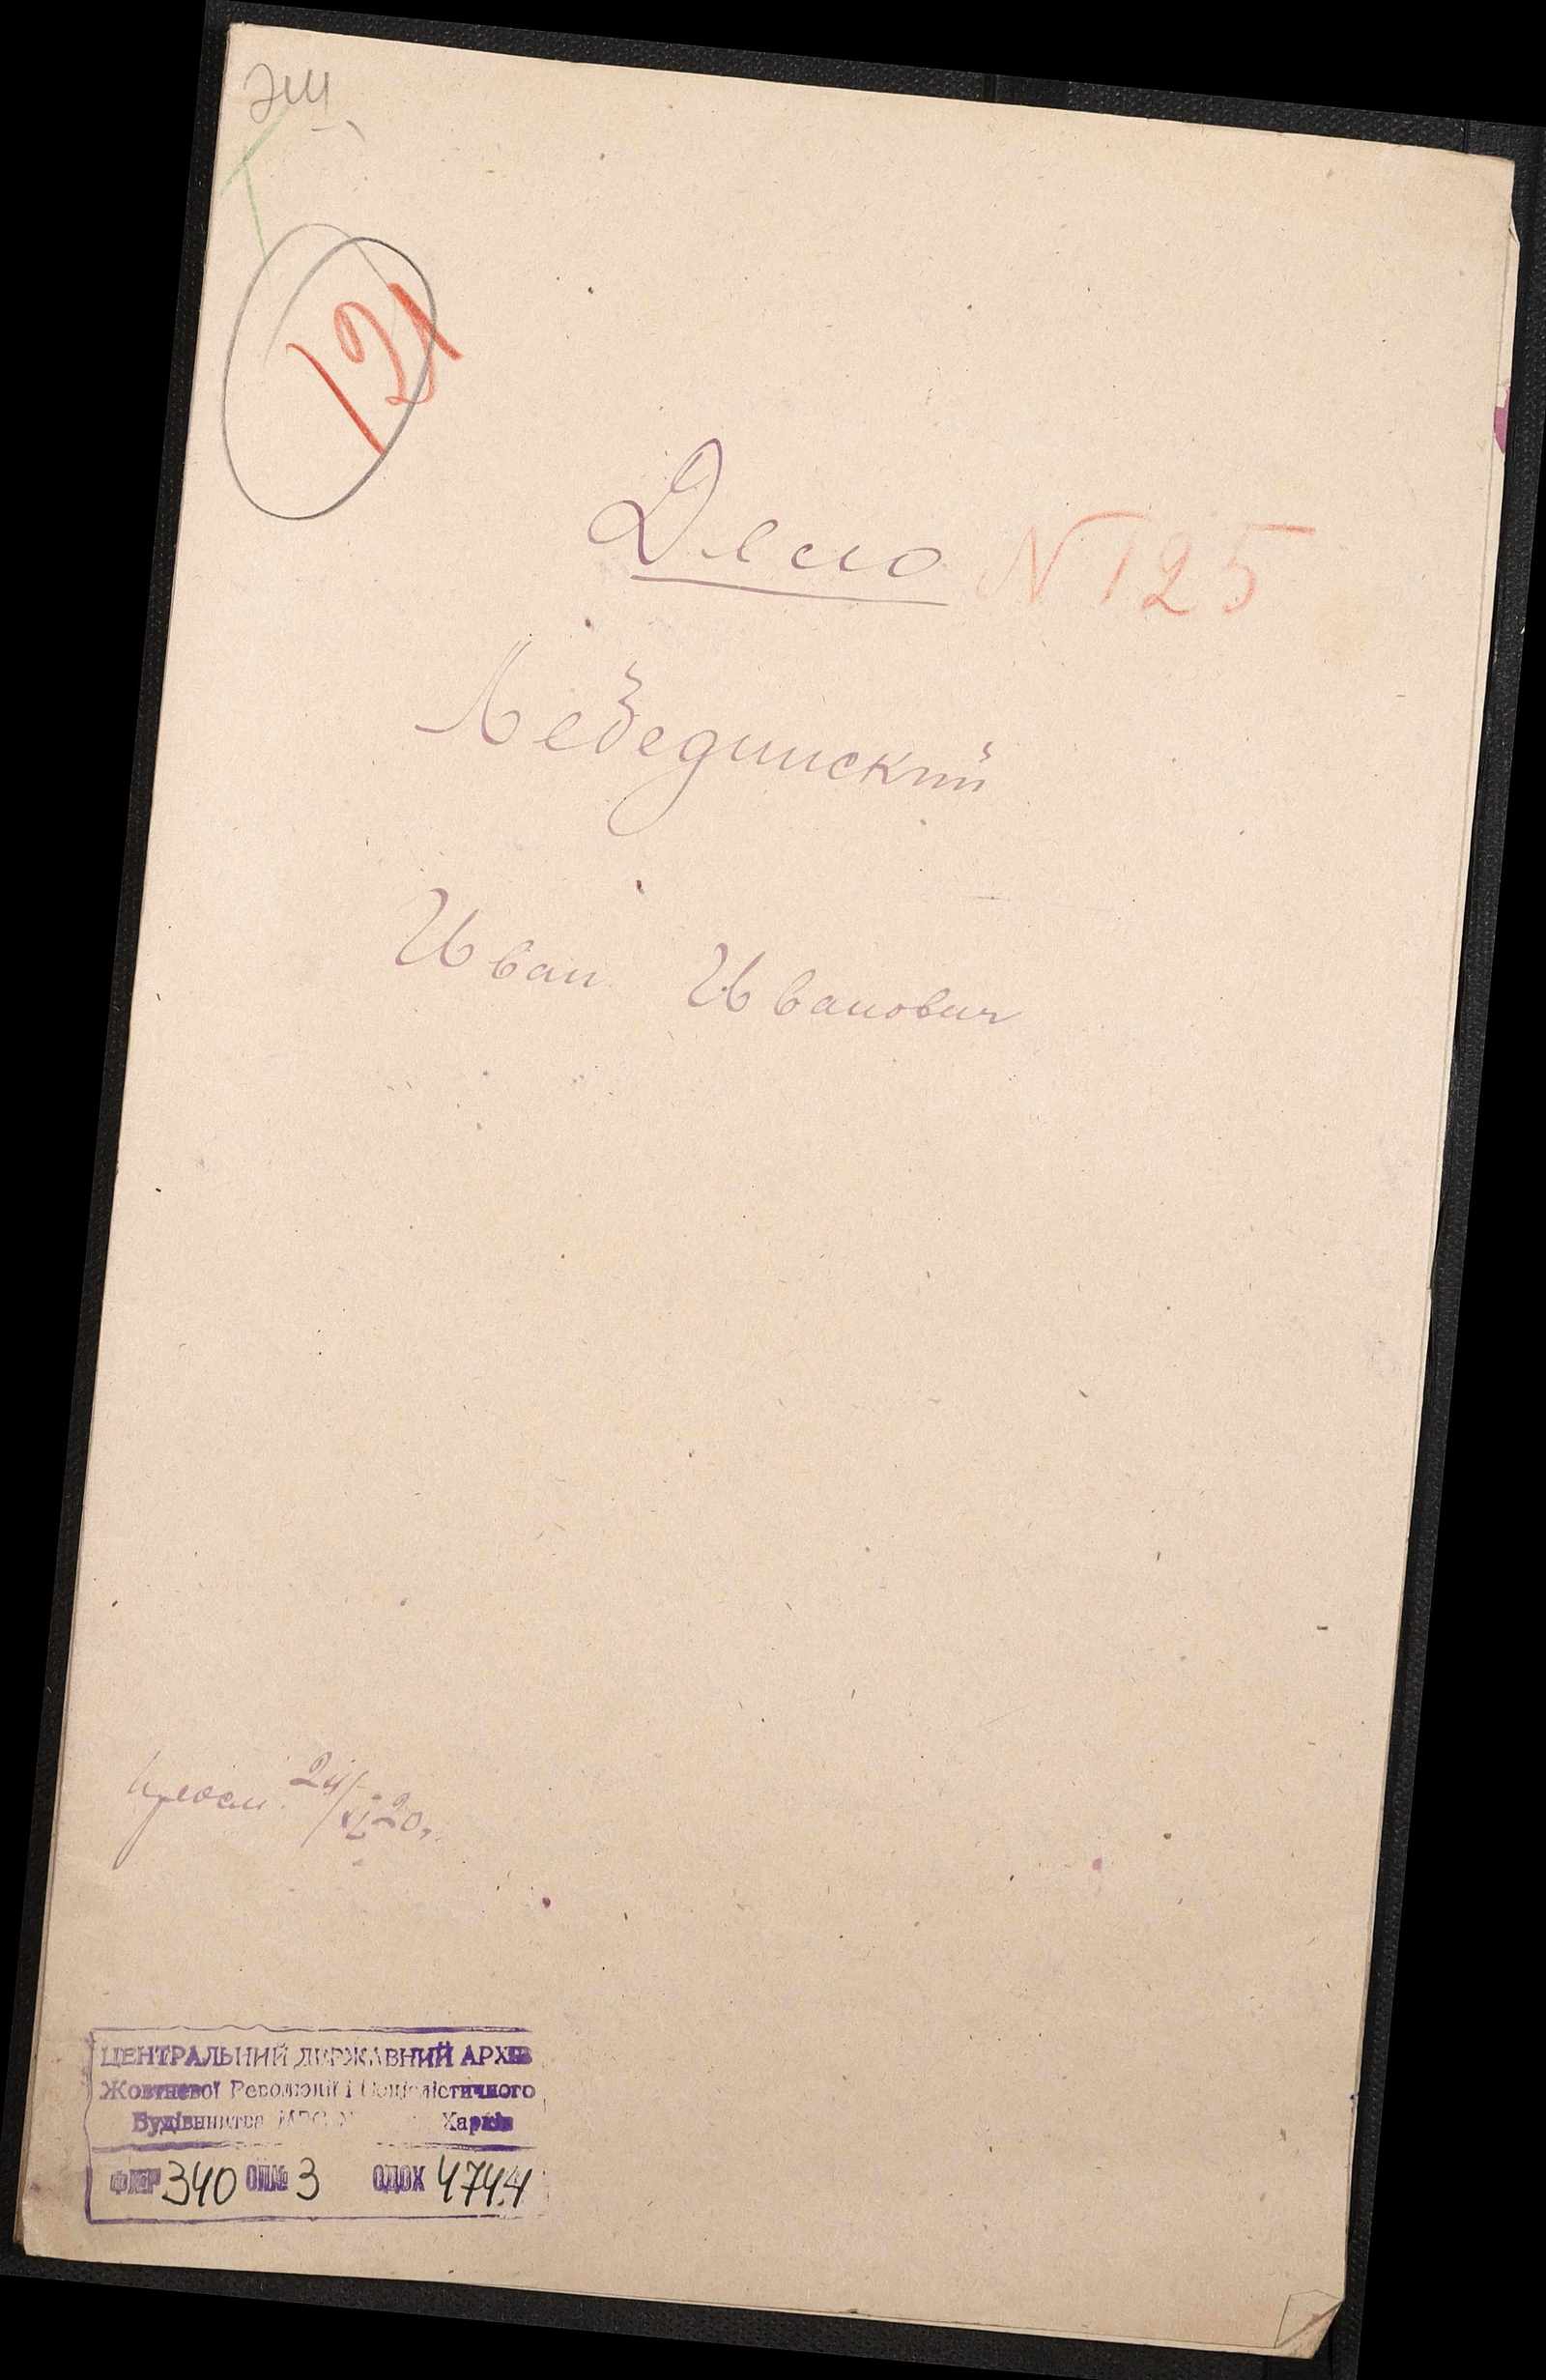 121
Дело N 125
Лебединский
Иван Иванович
24/XI 20г.
ЦЕНТРАЛЬНИЙ ДЕРЖАВНИЙ АРХІВ
Жовтневої Революції і Соціалістичного
Будівництва Харків
Ф№Р 340 ОП№ 3 ОДОХ 4744